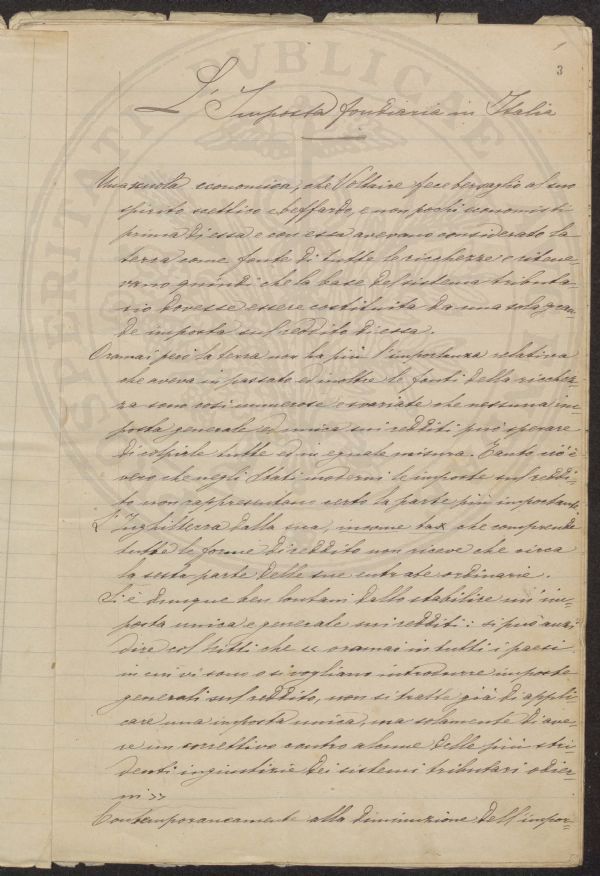 3
L'Imposta fondiaria in Italia
Una scuola economica, che Voltaire fece bersaglio al suo
spirito scettico e beffardo, e non pochi economisti
prima di essa e con essa avevano considerato la
terra come fonte di tutte le ricchezze e ritene-
vano quindi che la base del sistema tributa-
rio dovesse essere costituita da una sola gran-
de imposta sul reddito di essa.
Oramai però la terra non ha più l'importanza relativa
che aveva in passato ed inoltre le fonti della ricchez-
za sono così numerose e svariate che nessuna im-
posta generale ed unica sui redditi può sperare
di colpirle tutte ed in eguale misura. Tanto ciò è
vero che negli Stati moderni le imposte sul reddi-
to non rappresentano certo la parte più importante.
L'Inghilterra dalla sua income tax che comprende
tutte le forme di reddito non riceve che circa
la sesta parte delle sue entrate ordinarie.
Si è dunque ben lontani dallo stabilire un'im-
posta unica e generale sui redditi: si può anzi
dire col Vitti che « oramai in tutti i paesi
in cui vi sono o si vogliano introdurre imposte
generali sul reddito, non si tratta già di appli-
care una imposta unica, ma solamente di ave-
re un correttivo contro alcune delle più stri-
denti ingiustizie dei sistemi tributari odier-
ni »
Contemporaneamente alla diminuzione dell'impor-
OSPERITATI PUBLICAE